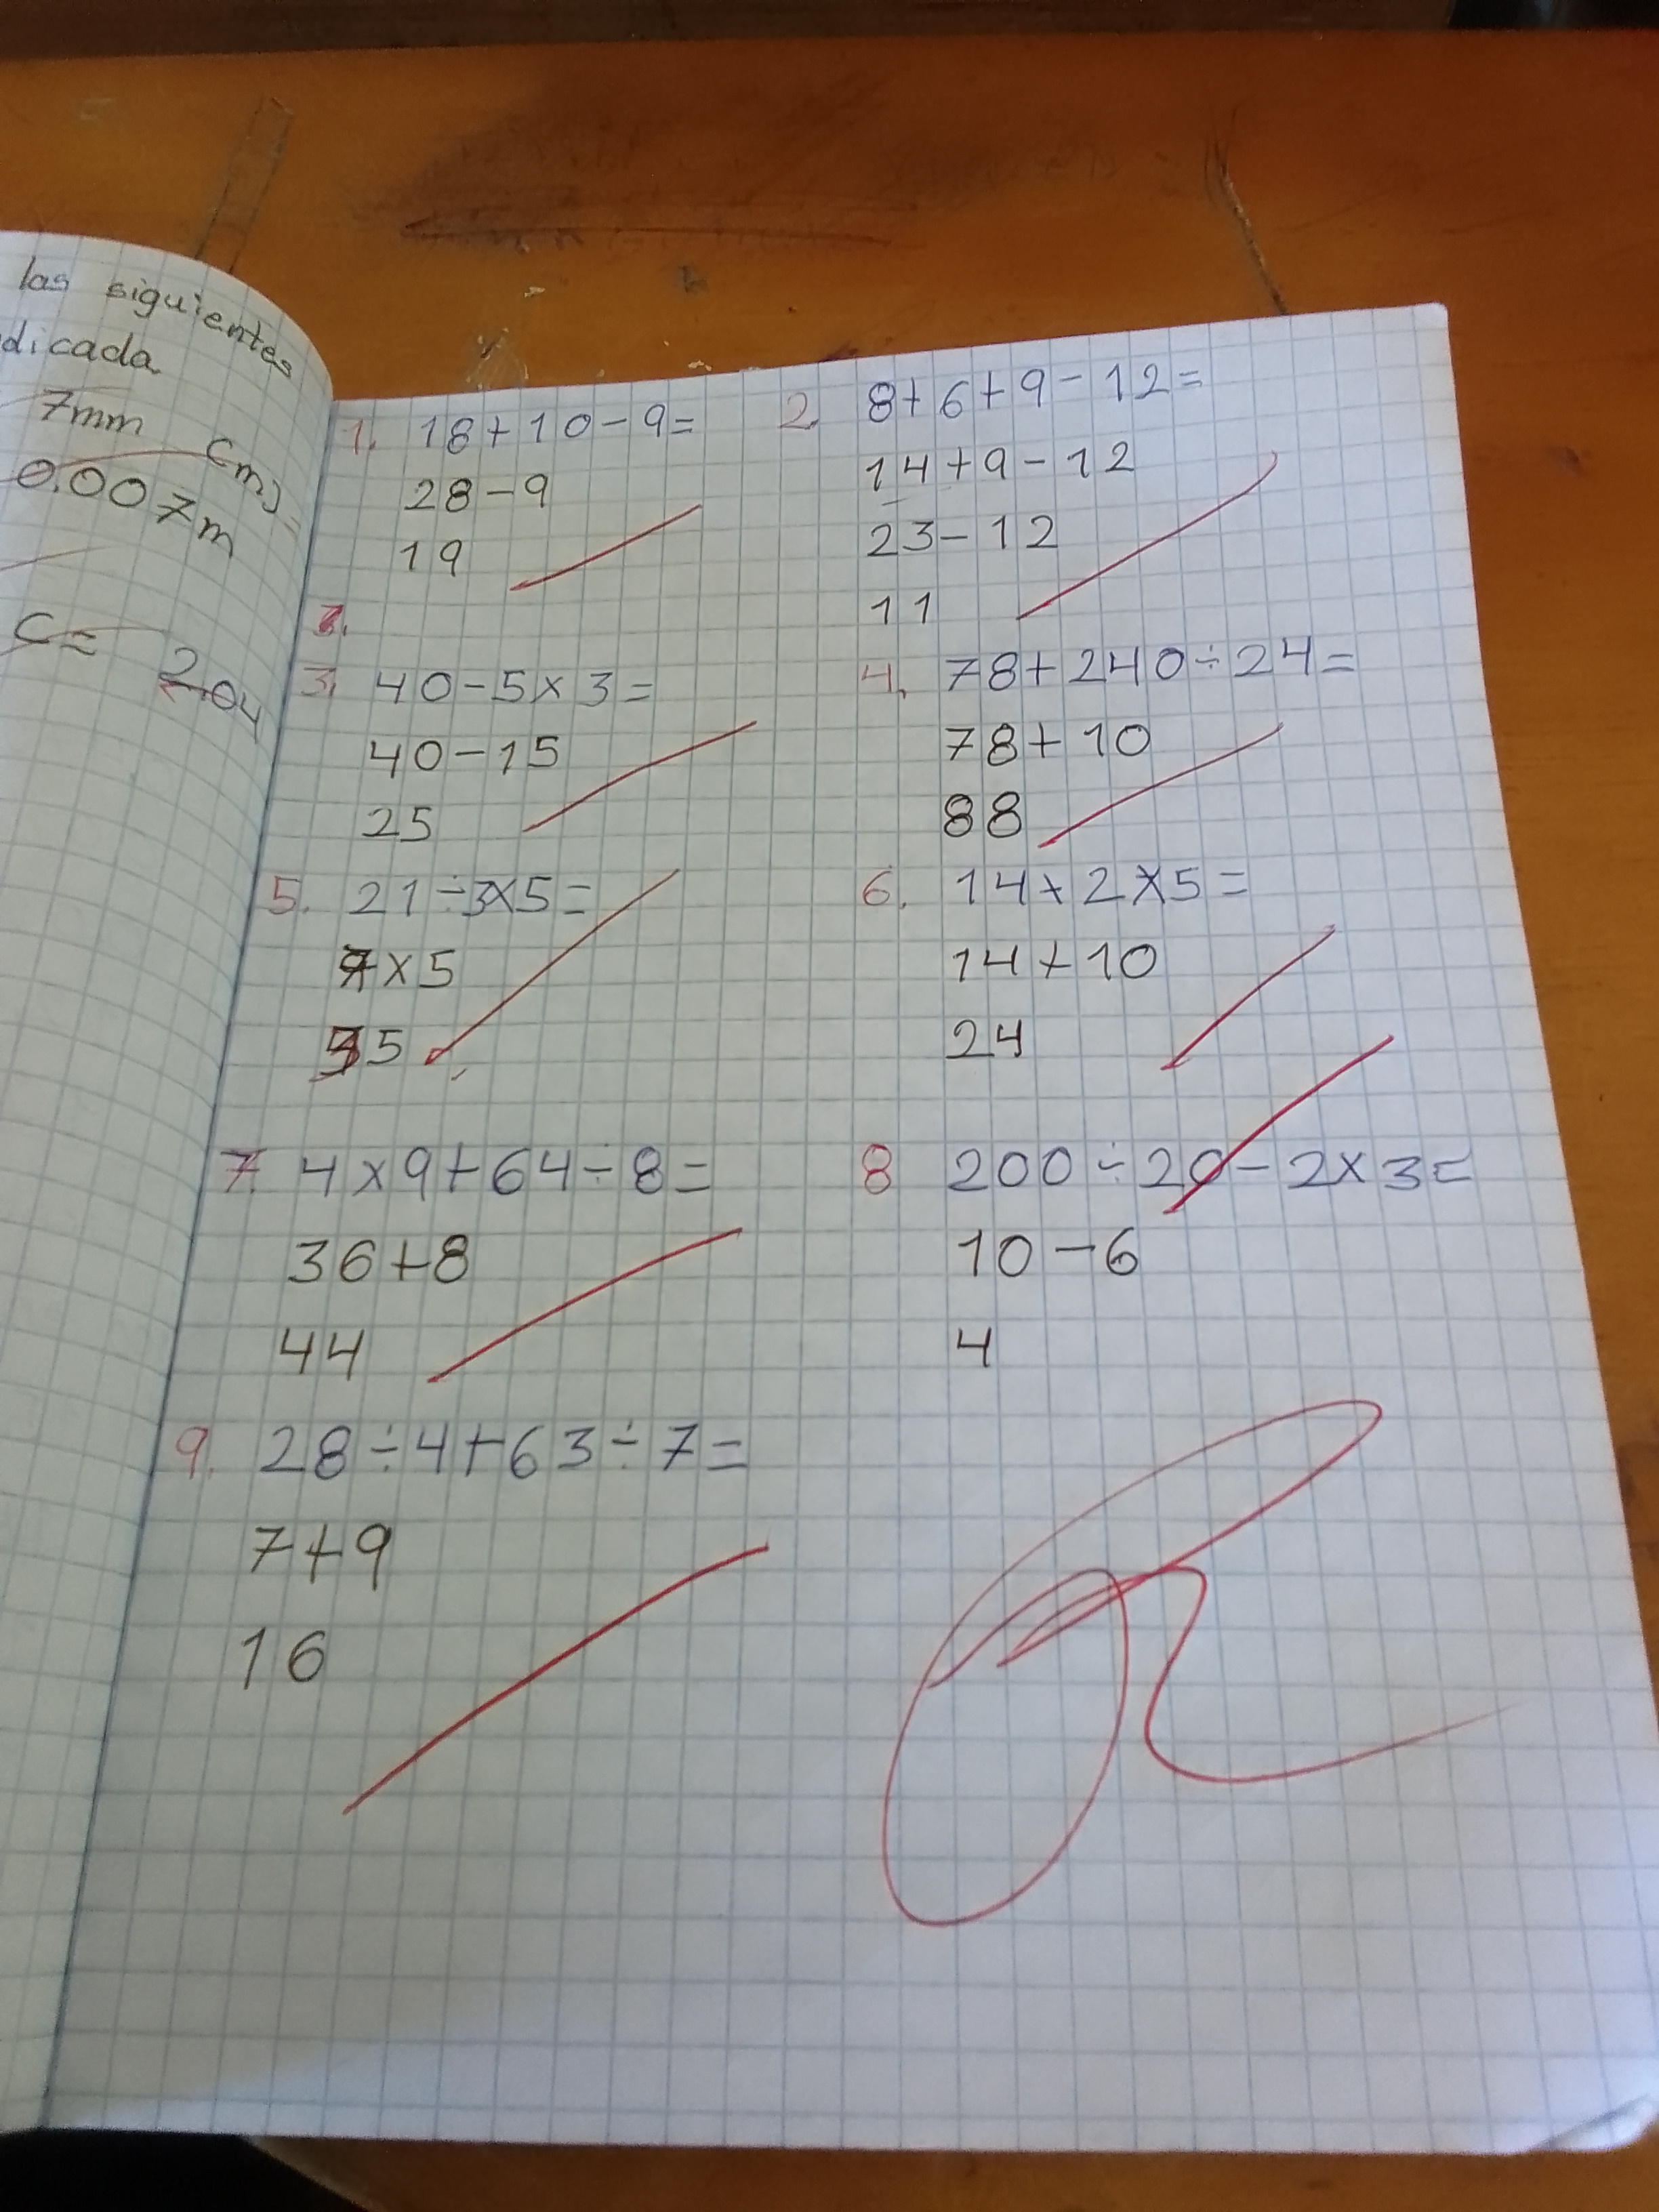 las siguientes
dicada
7mm cm)=
0.007m
C= 204
1. 18+10-9=
28-9
19
2. 8+6+9-12=
14+9-12
23-12
11
3. 40-5×3=
40-15
25
4. 78+240÷24=
78+10
88
5. 21÷3×5=
7×5
35
6. 14+2×5=
14+10
24
7. 4×9+64÷8=
36+8
44
8 200÷20-2×3=
10-6
4
9. 28÷4+63÷7=
7+9
16